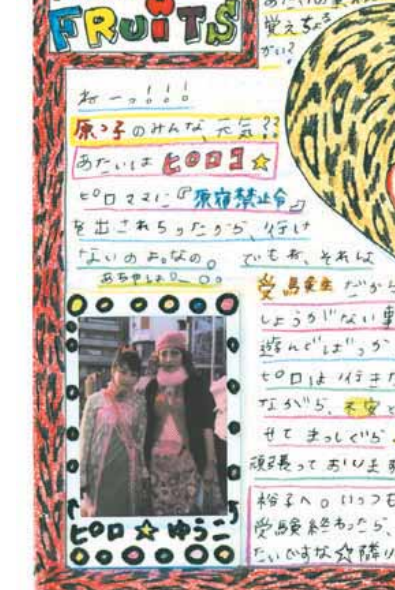 FRUiTS
覚えちょる
がい?
わーっ!!!
原っ子のみんな、元気??
あたいは ヒロコ☆
ピロママに『原宿禁止令』
を出されちったから、行け
ないのよ。なの。 でもね、それは
あちゃしょ〜
受馬食生 だから
しょうがない事
遊んでばっか
ピロは 行きた
ながら、不安と
せて まっしぐら
頑張って おりま
裕子へ。いつも
受験終わったら、
たいですな☆隣り
ピロ☆ゆうこ